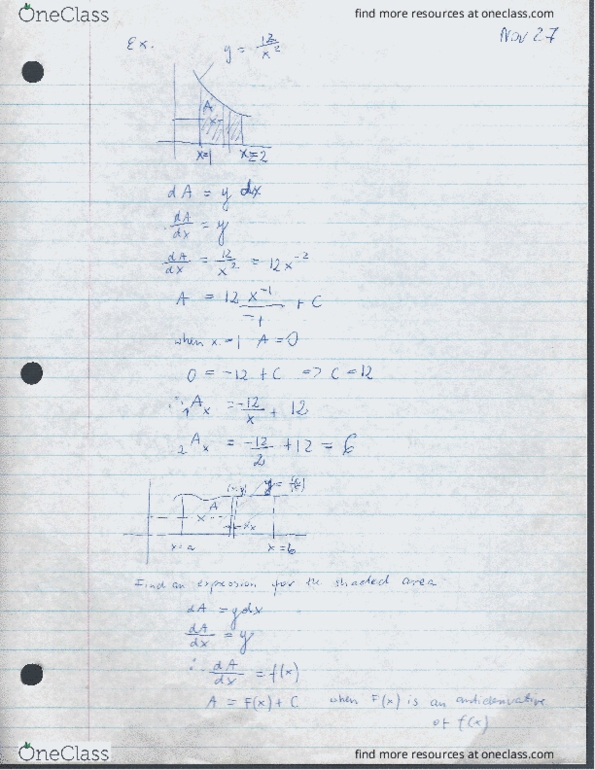 OneClass
find more resources at oneclass.com
Nov 27
Ex. y = 12/x²
A
x
x=1 x=2
dA = y dx
dA/dx = y
dA/dx = 12/x² = 12x⁻²
A = 12 x⁻¹/-1 + C
when x=1 A=0
0 = -12 + C => C=12
∴ ₁Aₓ = -12/x + 12
₂Aₓ = -12/2 + 12 = 6
(x,y) y = f(x)
A
x
x=a x=b
Find an expression for the shaded area
dA = ydx
dA/dx = y
∴ dA/dx = f(x)
A = F(x) + C when F(x) is an antiderivative
of f(x)
OneClass
find more resources at oneclass.com